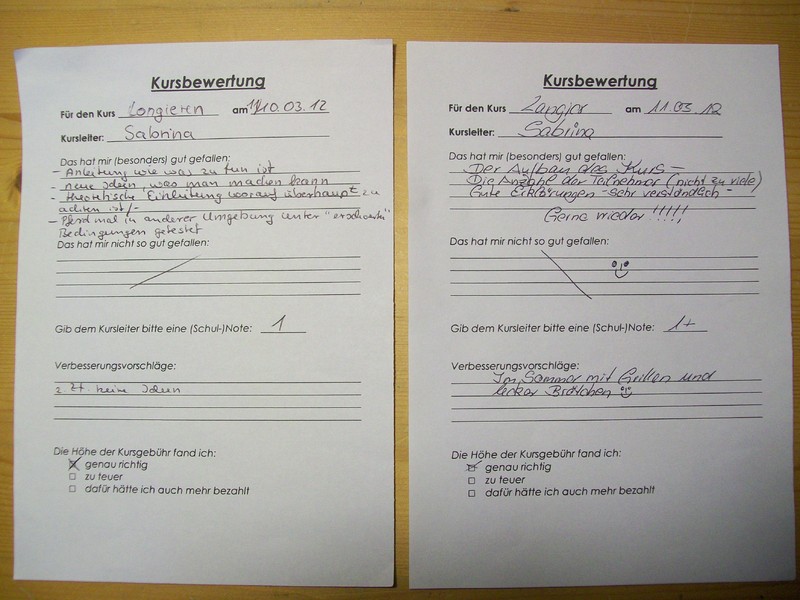 Kursbewertung
Für den Kurs Longieren am 10.03.12
Kursleiter: Sabrina
Das hat mir (besonders) gut gefallen:
- Anleitung wie was zu tun ist
- neue Ideen, was man machen kann
- theoretische Einleitung worauf überhaupt zu
achten ist
- Pferd mal in anderer Umgebung unter "erschwerten"
Bedingungen getestet
Das hat mir nicht so gut gefallen:
Gib dem Kursleiter bitte eine (Schul-)Note: 1
Verbesserungsvorschläge:
z. Zt. keine Ideen
Die Höhe der Kursgebühr fand ich:
genau richtig
zu teuer
dafür hätte ich auch mehr bezahlt
Kursbewertung
Für den Kurs am 11.03.12
Kursleiter: Sabrina
Das hat mir (besonders) gut gefallen:
Der Aufbau des Kurs -
Die Anzahl der Teilnehmer (nicht zu viele)
Gute Erklärungen - Sehr verständlich -
Gerne wieder !!!!!
Das hat mir nicht so gut gefallen:
Gib dem Kursleiter bitte eine (Schul-)Note: 1+
Verbesserungsvorschläge:
Im Sommer mit Grillen und
lecker Brötchen
Die Höhe der Kursgebühr fand ich:
genau richtig
zu teuer
dafür hätte ich auch mehr bezahlt